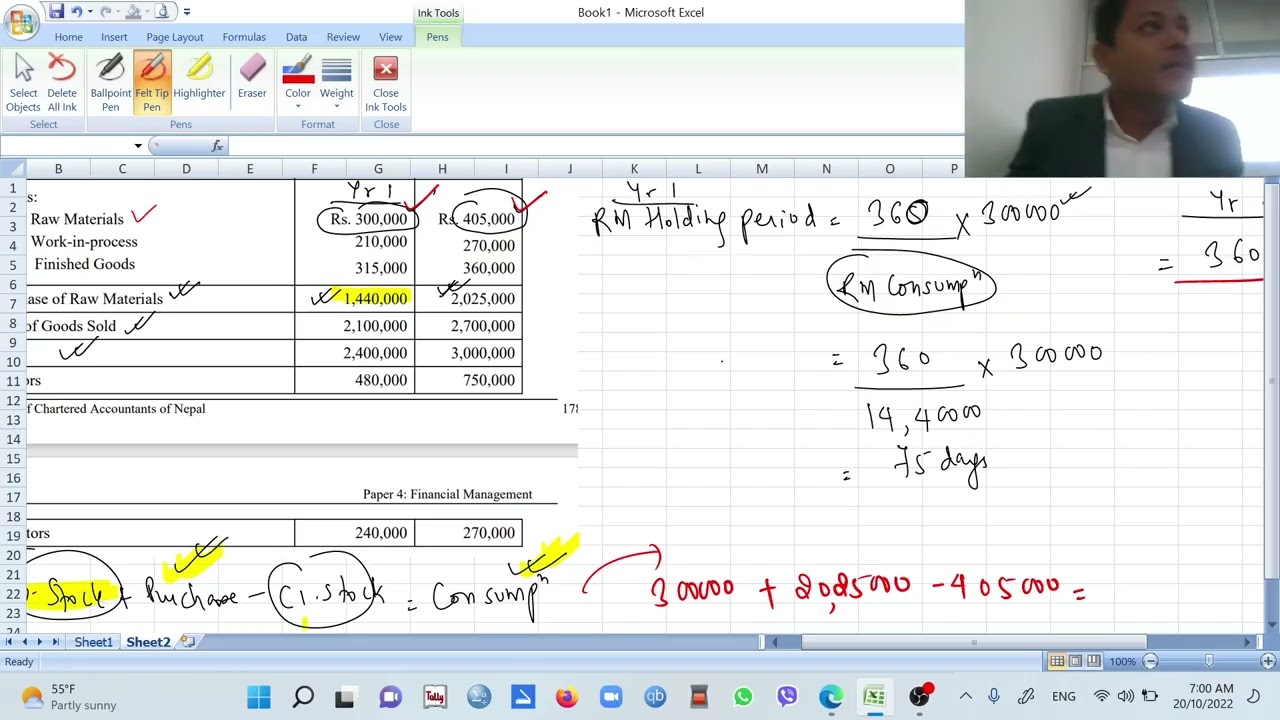 Ink Tools
Book1 - Microsoft Excel
Home Insert Page Layout Formulas Data Review View Pens
Select Objects
Delete All Ink
Ballpoint Pen
Felt Tip Pen
Highlighter
Eraser
Color
Weight
Close Ink Tools
Select Pens Format Close
fx
B C D E F G H I J K L M N O P
1
2
3
4
5
6
7
8
9
10
11
12
13
14
15
16
17
18
19
20
21
22
23
24
s:
Yr 1
Raw Materials Rs. 300,000 Rs. 405,000
Work-in-process 210,000 270,000
Finished Goods 315,000 360,000
ase of Raw Materials 1,440,000 2,025,000
of Goods Sold 2,100,000 2,700,000
2,400,000 3,000,000
rs 480,000 750,000
f Chartered Accountants of Nepal 178
Paper 4: Financial Management
tors 240,000 270,000
Stock + Purchase - Cl.stock = Consumpⁿ
Yr 1
RM Holding period = 360 × 300000
RM Consumpⁿ
= 360 × 300000
14,40000
= 75 days
Yr
= 360
300000 + 20,25000 - 405000 =
Sheet1 Sheet2
Ready
100%
55°F
Partly sunny
Tally
qb
ENG
7:00 AM
20/10/2022